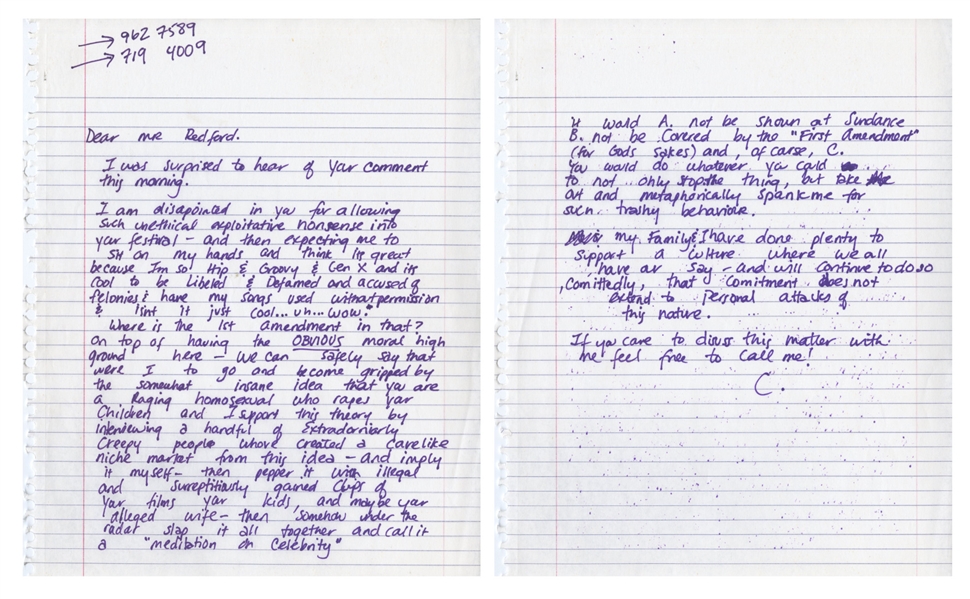 → 962 7589
→ 719 4009
Dear mr Redford.
I was surprised to hear of yar comment
this morning.
I am disapointed in you for allowing
such unethical exploitative nonsense into
your festival - and then expecting me to
sit on my hands and think its great
because Im so Hip & Groovy & Gen X and its
cool to be Libeled & Defamed and accused of
felonies & have my songs used without permission
& Isnt it just cool... uh... wow."
Where is the 1st amendment in that?
On top of having the OBVIOUS moral high
ground here - we can safely say that
were I to go and become gripped by
the somewhat insane idea that you are
a Raging homosexual who rapes yar
Children and I support this theory by
interviewing a handful of Extradorniarly
Creepy people whove created a
niche market from this idea - and imply
it myself - then pepper it with illegal
and surreptitiously gained Clips of
yar films yar kids, and maybe yar
alleged wife - then somehow under the
radar slap it all together and call it
a "meditation on Celebrity"
it would A. not be shown at Sundance
B. not be Covered by the "First Amendment"
(for Gods sakes) and, of carse, C.
You would do whatever you could
to not only stop the thing, but take
out and metaphorically spank me for
such trashy behaviour.
my Family & I have done plenty to
support a culture where we all
have ar say - and will continue to do so
, Comittedly, that Comitment does not
extend to personal attacks of
this nature.
If you care to discuss this matter with
me feel free to call me!
C.